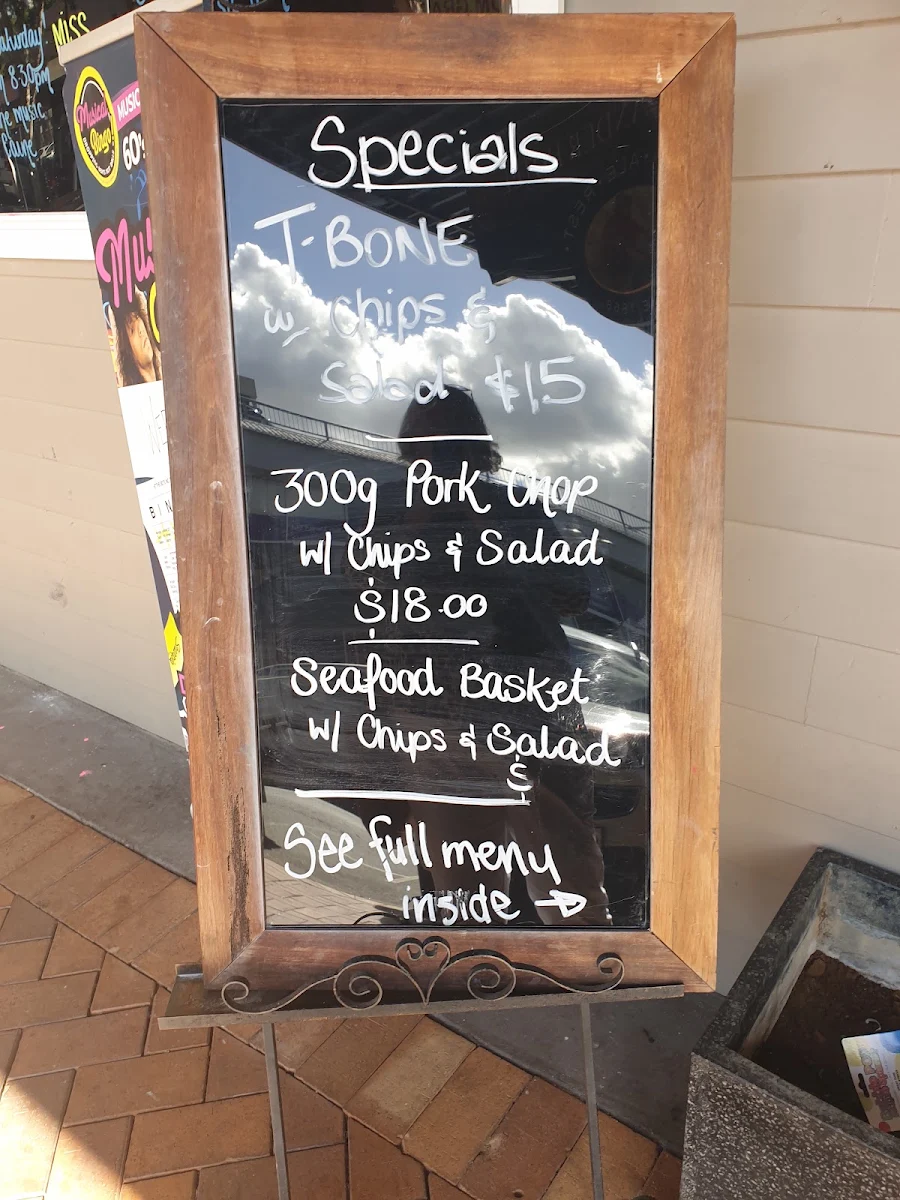 Specials
T-BONE
w/ chips &
Salad $15
300g Pork Chop
w/ Chips & Salad
$18.00
Seafood Basket
w/ Chips & Salad
$
See full menu
inside →
MISS
8:30pm
Musical
Bingo
MUSIC
60's